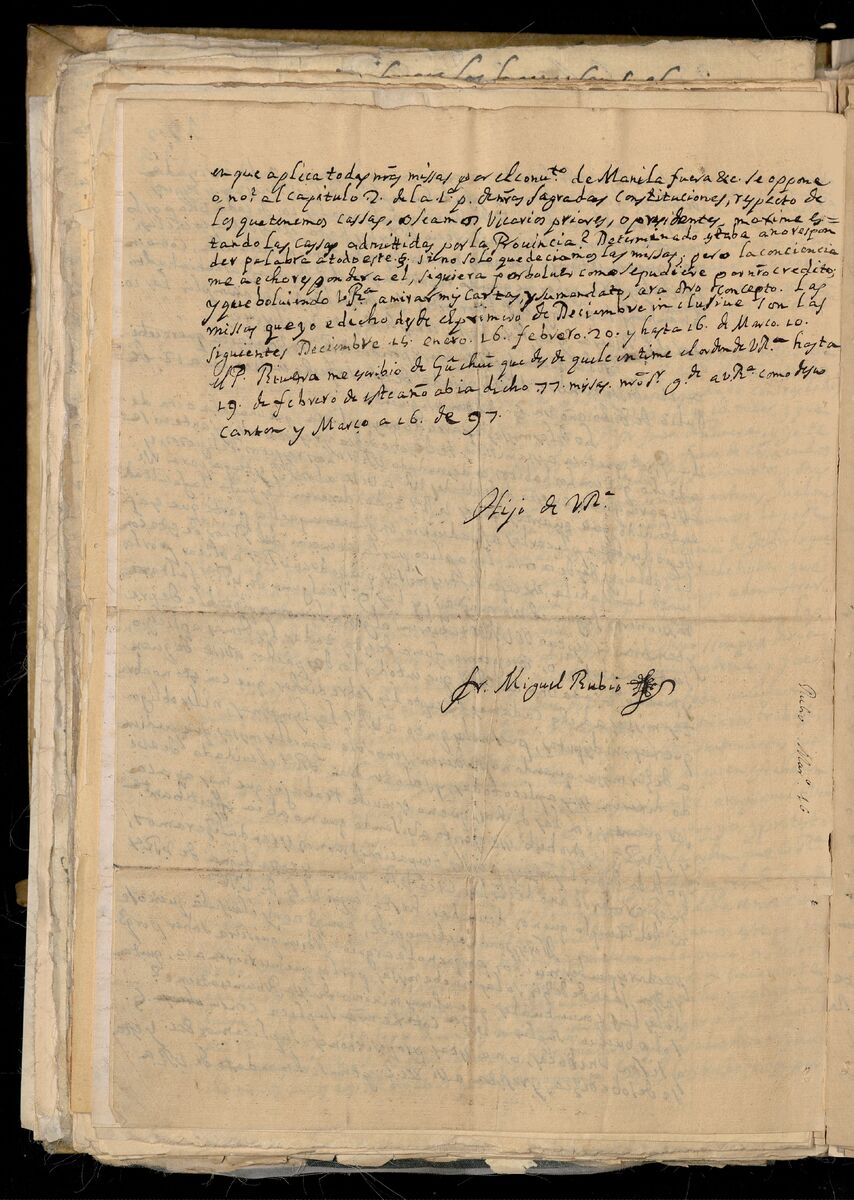 en que aplica todas nr̃as missas por el conu.to de Manila fuera &c. se oppone
o no? al capitulo 2. de la 1.a p. de nr̃as sagradas Constituciones, respecto de
los que tenemos cassas, o seamos Vicarios priores, o presidentes, maxime es-
tando las cassas admittidas por la Prouincia? Determinado estaba a no respon
der palabra a todo este §. sino solo que deciamos las missas; pero la conciencia
me a echo responder a el, siquiera por boluer como se pudiere por nr̃o credito;
y que boluiendo V.R.a a mirar mis cartas, y su mandato, ara otro concepto. Las
missas que yo e dicho desde el primero de Deciembre inclusiue son las
siguientes Deciembre 15. enero. 16. febrero. 20. y hasta 16. de Março. 10.
el P. Riuera me escribio de que desde que le intime el orden de V.R.a hasta
19. de febrero de este año abia dicho 77. missas. nr̃o Sr. g.de a V.R.a como deseo
Canton y Março a 16. de 97.
Hijo de V.R.a
fr. Miguel Rubio
Rubio Mar.o 16